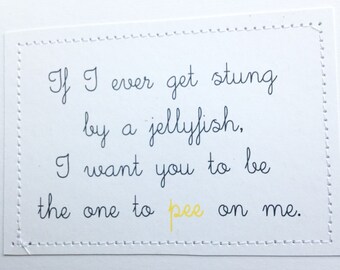 If I ever get stung
by a jellyfish,
I want you to be
the one to pee on me.